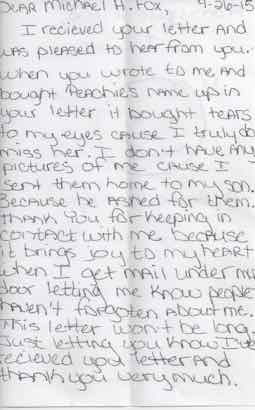 DEAR MICHAEL H. FOX, 9-26-15
I recieved your letter AND
was pleased to hear from you.
When you wrote to me AND
bought Peachies name up in
your letter it bought tears
to my eyes cause I truly do
miss her. I don't have any
pictures of me cause I
sent them home to my son.
Because he asked for them.
Thank you for keeping in
contact with me because
it brings joy to my heart
when I get mail under my
door letting me know people
haven't forgotten about me.
This letter won't be long.
Just letting you know I've
recieved you letter AND
thank you very much.